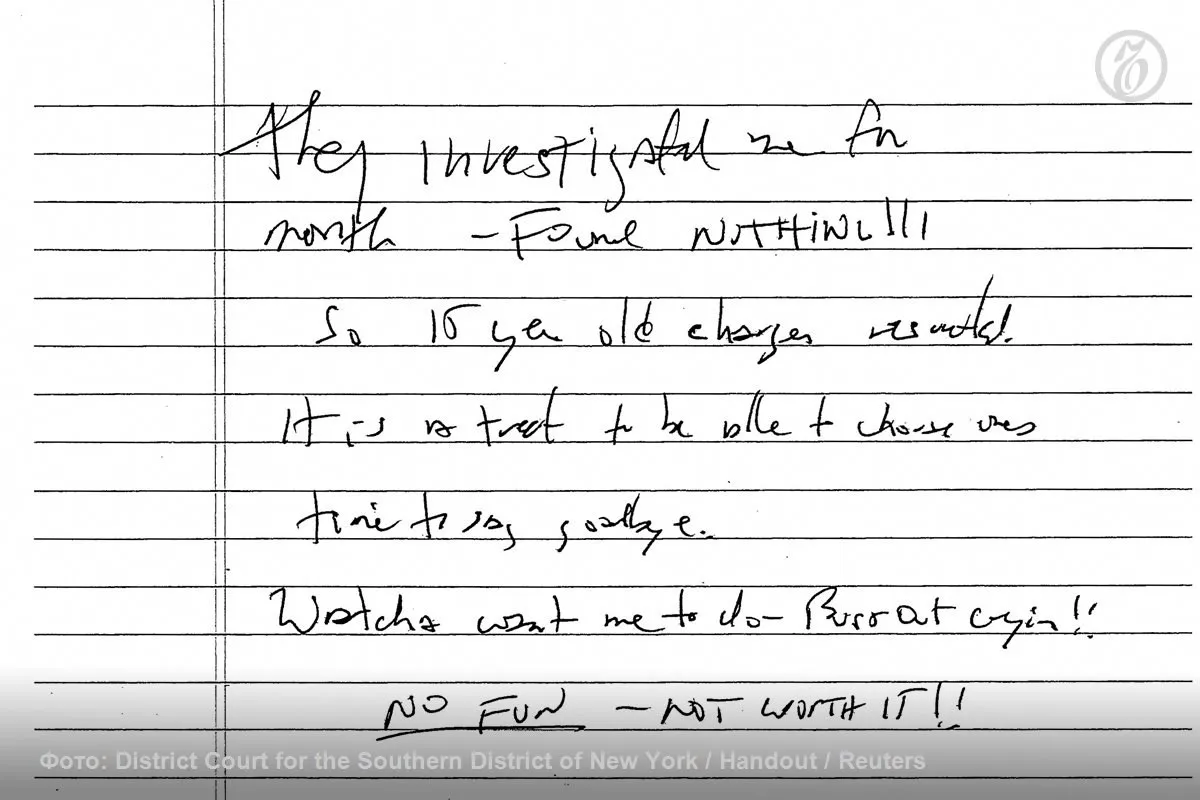 They investigated me for
month – Found NOTHING!!!
So 15 year old charges resulted.
It is a treat to be able to choose ones
time to say goodbye.
Watcha want me to do – Burst out cryin!!
NO FUN – NOT WORTH IT!!
Фото: District Court for the Southern District of New York / Handout / Reuters